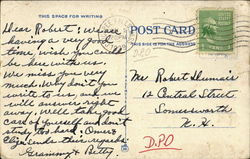 THIS SPACE FOR WRITING
POST CARD
THIS SIDE IS FOR THE ADDRESS
Dear Robert: We are
having a very good
time, wish you could
be here with us.
We miss you very
much. Why don't you
write to us and we
will answer right
away. Well take good
care of yourself and don't
study too hard. Omer &
Eliza sends their regards.
Grammy & Betty
Mr Robert
12 Central Street
Somersworth
N. H.
D.P.O